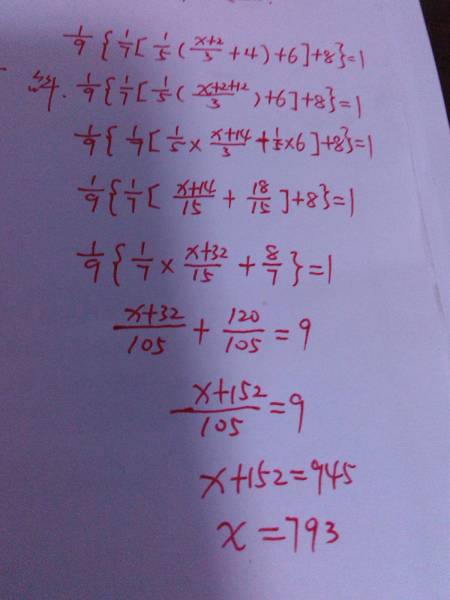 1/9 {1/7[1/5(x+2/3+4)+6]+8}=1
解.1/9{1/7[1/5(x+2+12/3)+6]+8}=1
1/9{1/7[1/5×x+14/3+1/5×6]+8}=1
1/9{1/7[x+14/15+18/15]+8}=1
1/9{1/7×x+32/15+8/7}=1
x+32/105+120/105=9
x+152/105=9
x+152=945
x=793